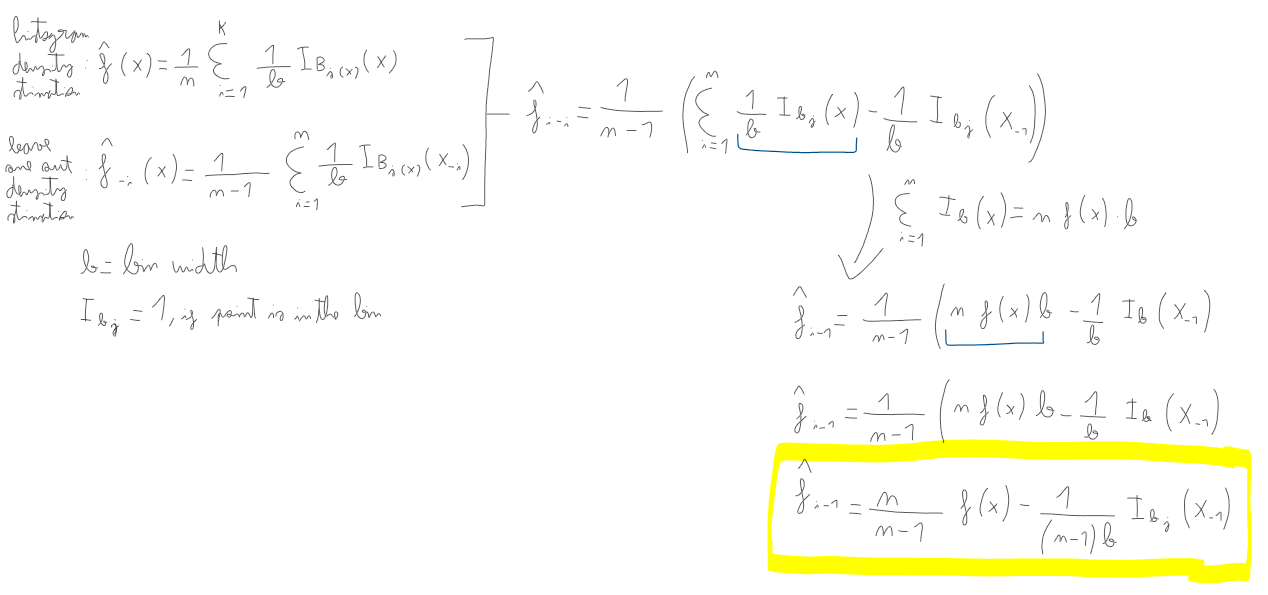 histogram
density
stimation : f̂ (x) = 1/n ∑_{i=1}^{K} 1/b I_{B_j(x)} (x)
leave
one out
density
stimation : f̂_{-i} (x) = 1/(n-1) ∑_{i=1}^{n} 1/b I_{B_j(x)} (x_{-i})
b = bin width
I_{b_j} = 1, if point is in the bin
f̂_{i-i} = 1/(n-1) ( ∑_{i=1}^{n} 1/b I_{b_j} (x) - 1/b I_{b_j} (x_{-1}) )
∑_{i=1}^{n} I_b (x) = n f(x) · b
f̂_{i-1} = 1/(n-1) ( n f(x) b - 1/b I_b (x_{-1})
f̂_{i-1} = 1/(n-1) ( n f(x) b - 1/b I_b (x_{-1})
f̂_{i-1} = n/(n-1) f(x) - 1/((n-1) b) I_{b_j} (x_{-1})